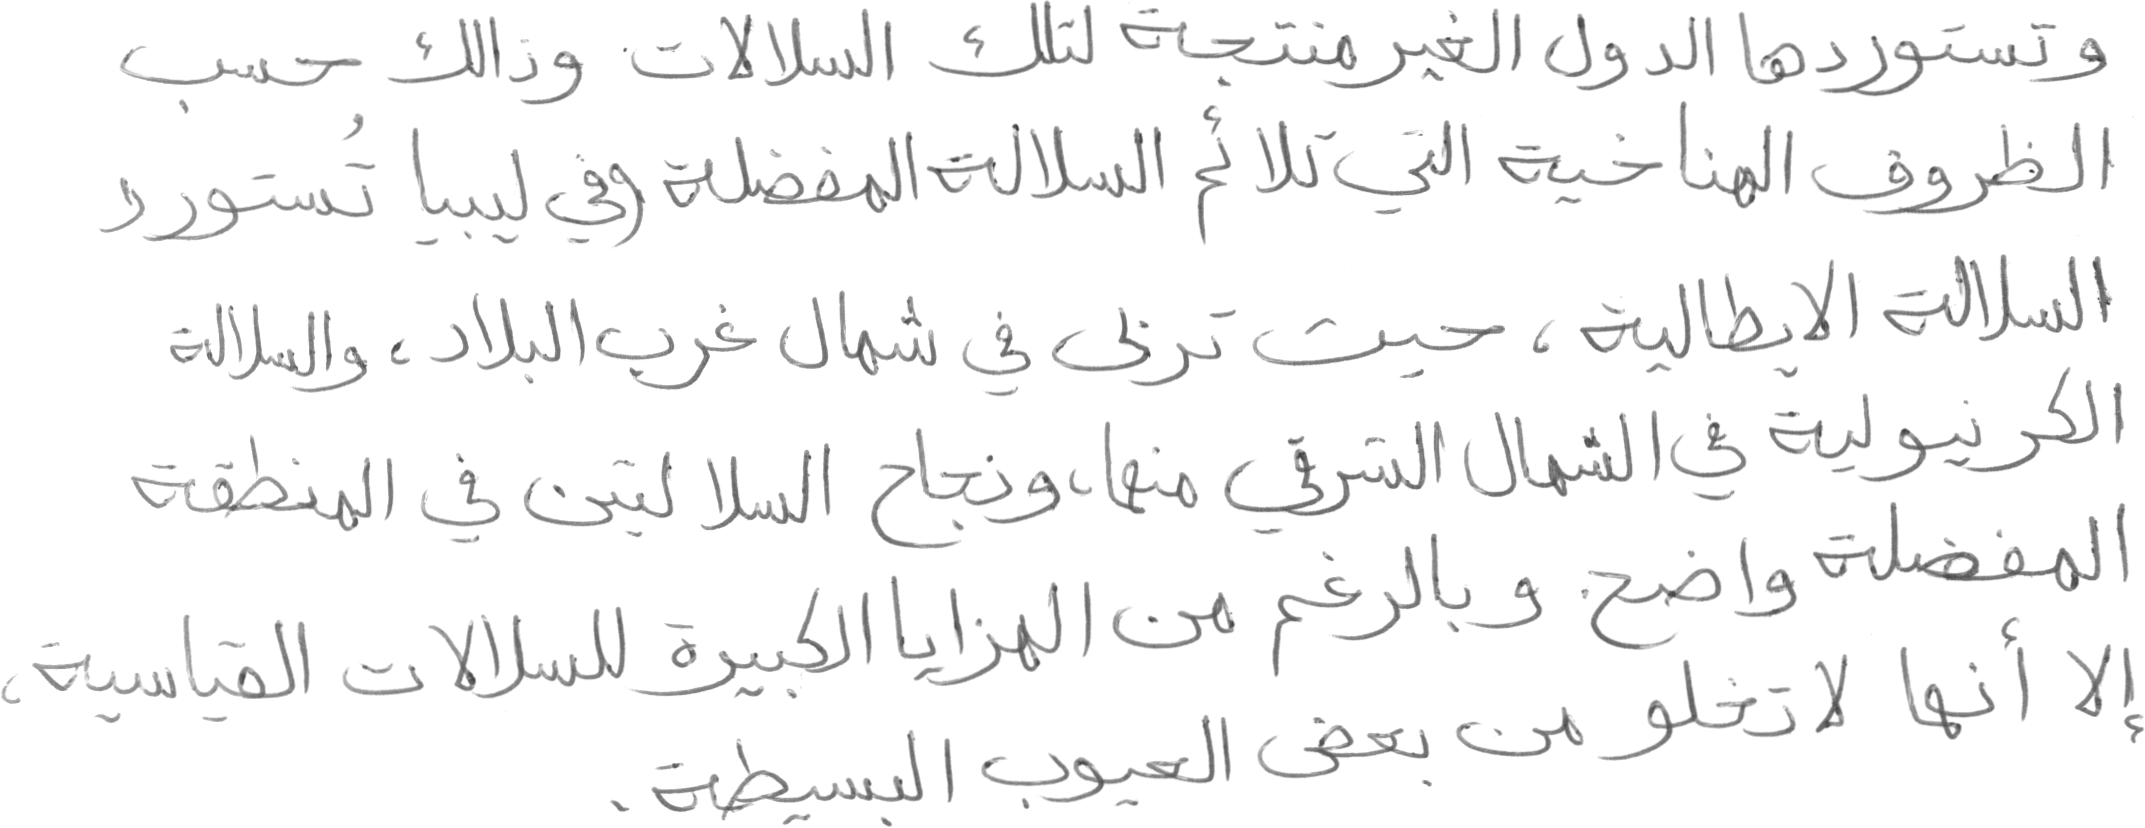 وتستوردها الدول الغير منتجة لتلك السلالات وذالك حسب
الظروف المناخية التي تلائم السلالة المفضلة (وفي ليبيا تُستورد
السلالة الايطالية، حيث تربى في شمال غرب البلاد، والسلالة
الكرنيولية في الشمال الشرقي منها، ونجاح السلالتين في المنطقة
المفضلة واضح. وبالرغم من المزايا الكبيرة للسلالات القياسية،
إلا أنها لا تخلو من بعض العيوب البسيطة.